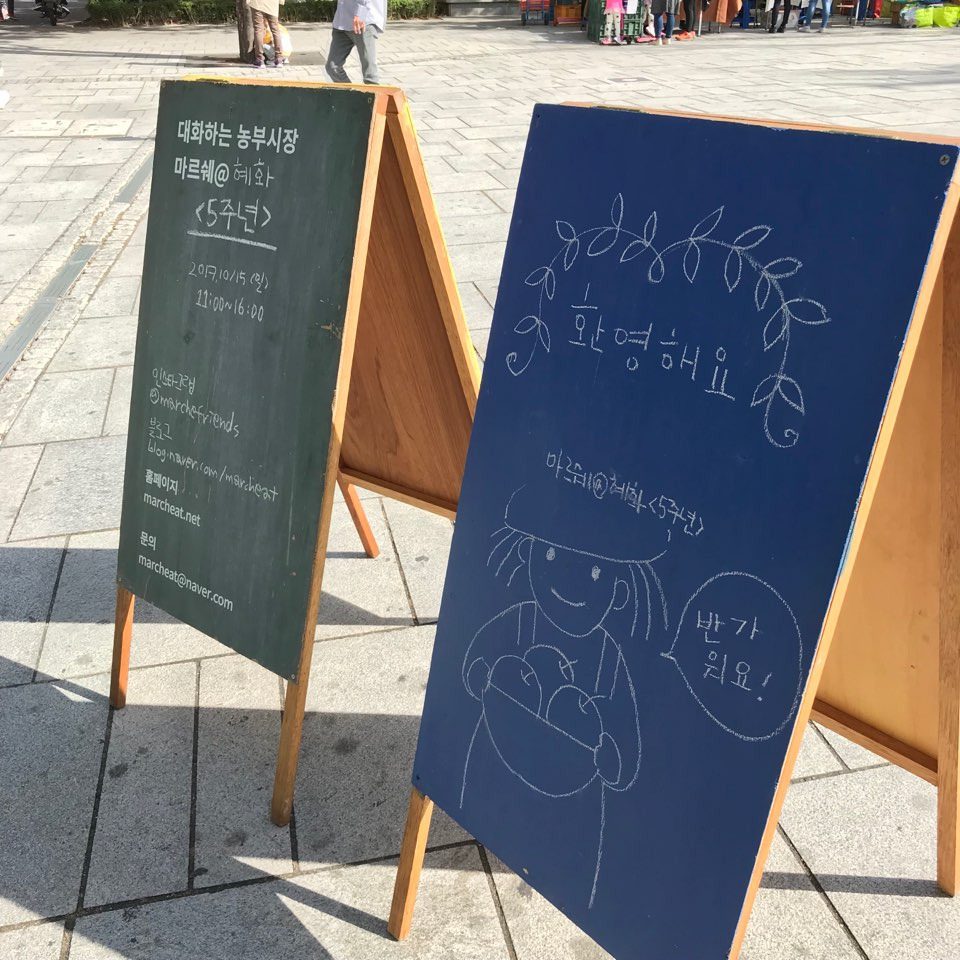 대화하는 농부시장
마르쉐@혜화
<5주년>
2017.10/15 (일)
11:00~16:00
인스타그램
@marchefriends
블로그
blog.naver.com/marcheat
홈페이지
marcheat.net
문의
marcheat@naver.com
환영해요
마르쉐@혜화 <5주년>
반가
워요!